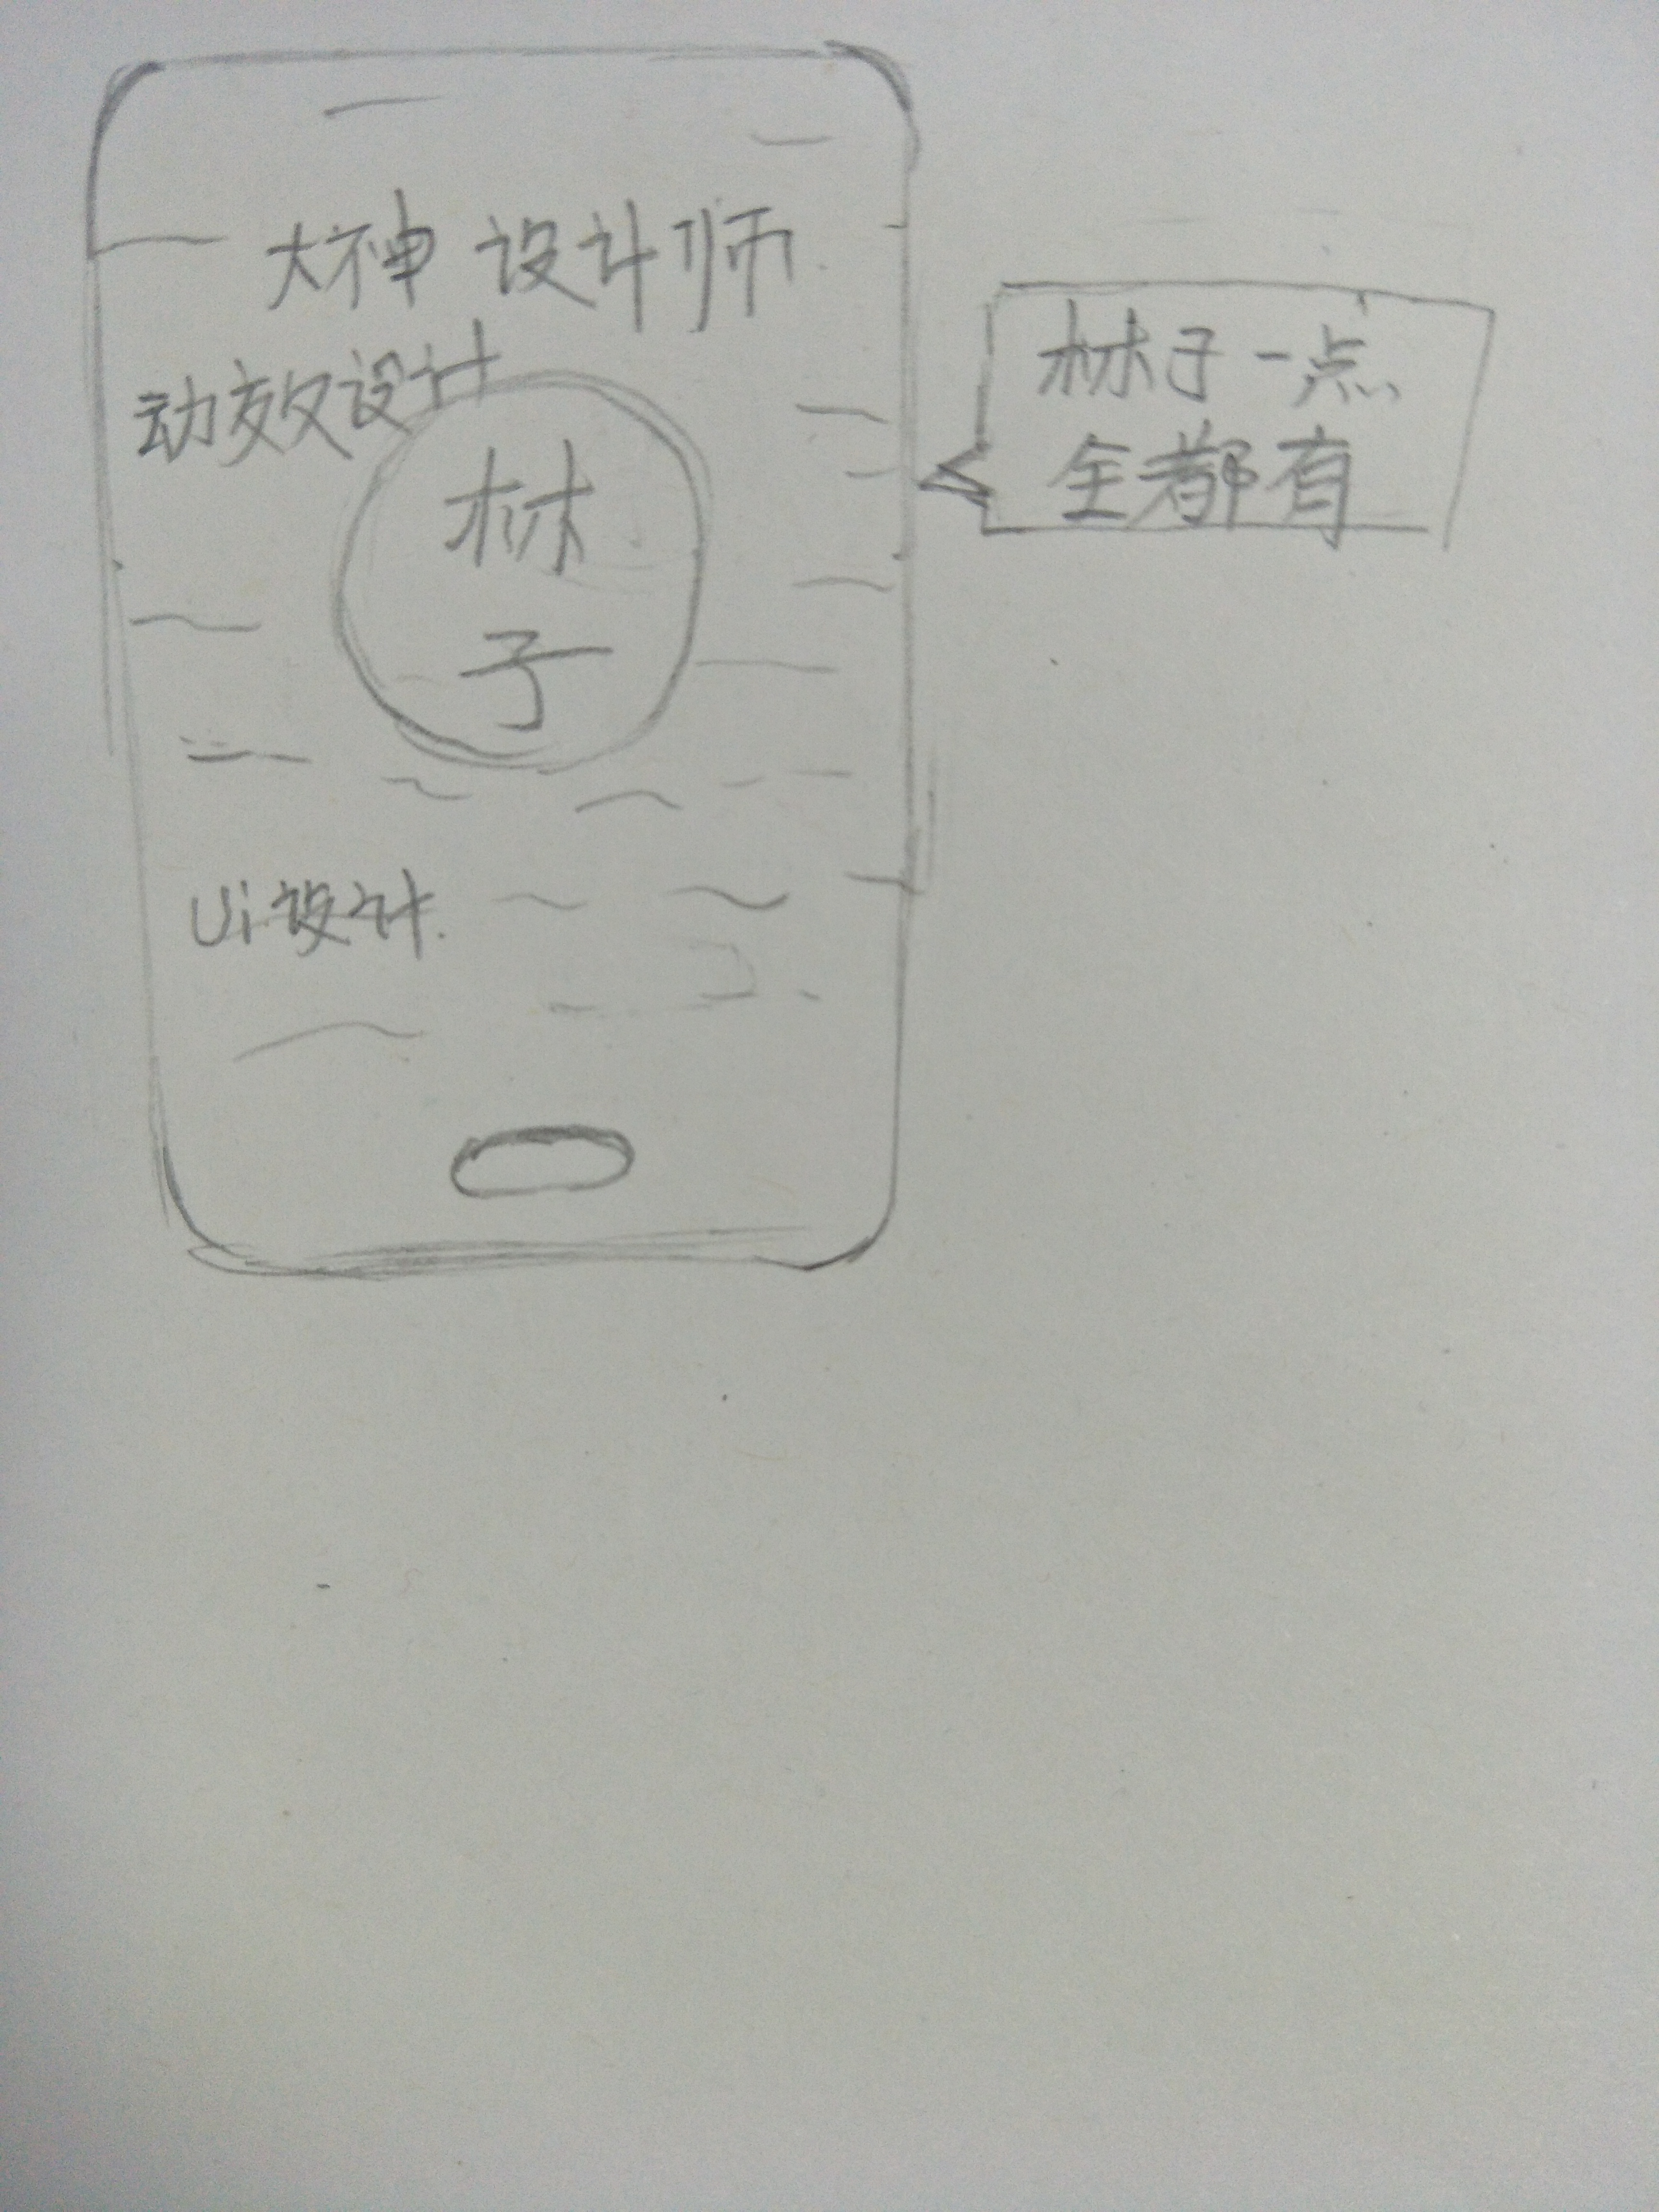 大神 设计师
动效设计
林
子
Ui设计.
林子一点
全都有